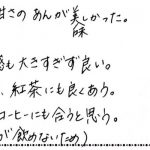 甘さの あんが美しかった。
味
も大きすぎず良い。
、紅茶にも良くあう。
コーヒーにも合うと思う。
が飲めないため)